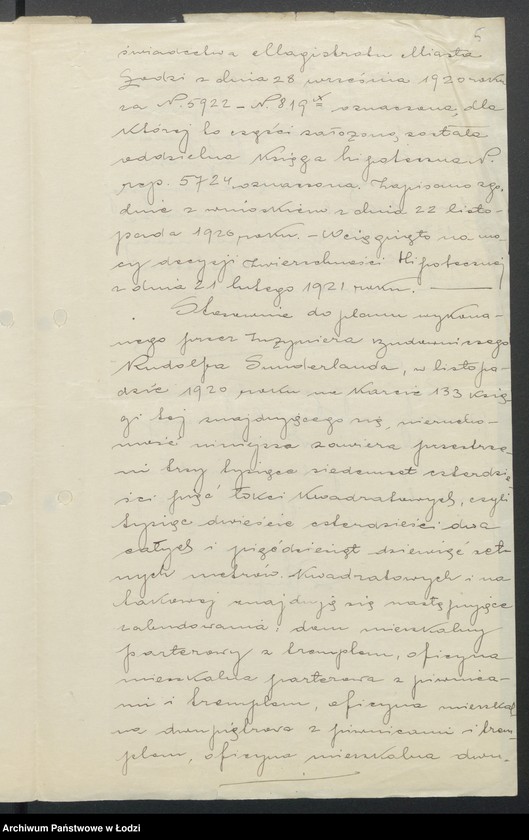 6
świadectwa Magistratu Miasta
Łodzi z dnia 28 września 1920 roku
za N. 5922 – N. 819 oznaczona, dla
której to części założoną została
oddzielna Księga hipoteczna N.
rep. 5724 oznaczona. Zapisano zgo-
dnie z wnioskiem z dnia 22 listo-
pada 1920 roku. – Wciągnięto na mo-
cy decyzji Zwierzchności Hipotecznej
z dnia 21 lutego 1921 roku. –
Stosownie do planu wykona-
nego przez Inżyniera rządowego
Rudolfa Sunderlanda, w listopa-
dzie 1920 roku na Karcie 133 Księ-
gi tej znajdującego się, nierucho-
mość niniejsza zawiera przestrze-
ni trzy tysiące siedemset czterdzie-
ści pięć łokci Kwadratowych, czyli
tysiąc dwieście czterdzieści dwa
całych i pięćdziesiąt dziewięć set-
nych metrów Kwadratowych i na
takowej znajdują się następujące
zabudowania: dom mieszkalny
parterowy z tremplem, oficyna
mieszkalna parterowa z piwnica-
mi i tremplem, oficyna mieszkal-
na dwupiętrowa z piwnicami i trem-
plem, oficyna mieszkalna dwu-
Archiwum Państwowe w Łodzi
www.szukajwarchiwach.gov.pl